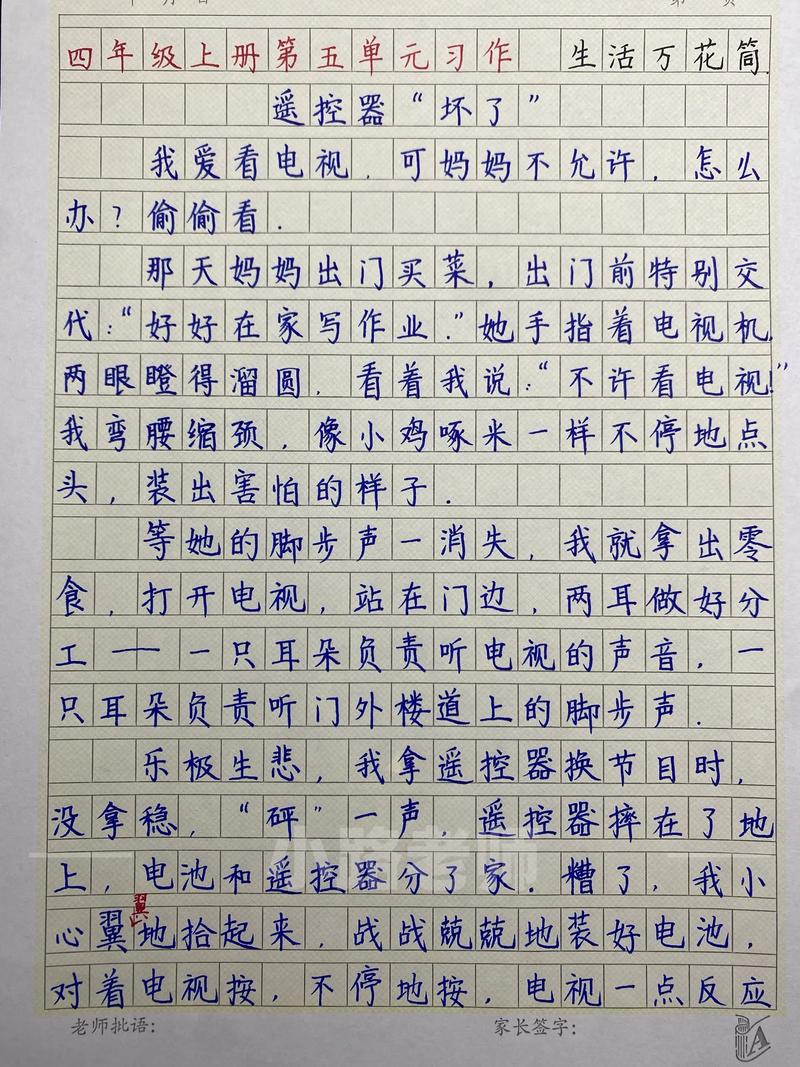 四年级上册第五单元习作 生活万花筒.
遥控器“坏了”
我爱看电视．可妈妈不允许．怎么
办？偷偷看．
那天妈妈出门买菜，出门前特别交
代：“好好在家写作业．”她手指着电视机，
两眼瞪得溜圆．看着我说：“不许看电视！”
我弯腰缩颈，像小鸡啄米一样不停地点
头，装出害怕的样子．
等她的脚步声一消失，我就拿出零
食，打开电视，站在门边，两耳做好分
工——一只耳朵负责听电视的声音．一
只耳朵负责听门外楼道上的脚步声．
乐极生悲，我拿遥控器换节目时，
没拿稳．“砰”一声，遥控器摔在了地
上，电池和遥控器分了家．糟了．我小
翼
心翼地拾起来．战战兢兢地装好电池，
对着电视按，不停地按，电视一点反应
老师批语： 家长签字：
小路老师